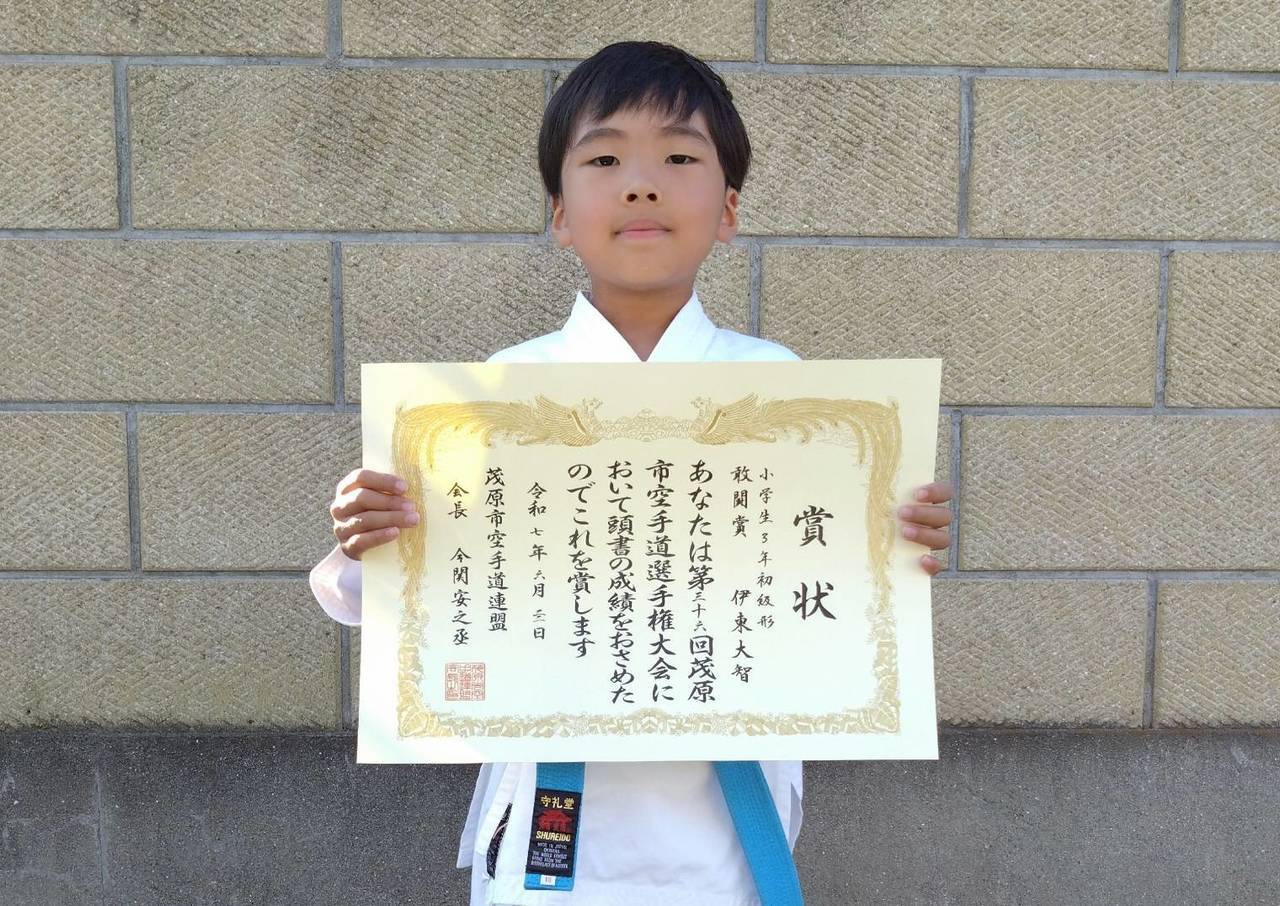 賞状
小学生3年初級形
敢闘賞 伊東大智
あなたは第三十六回茂原
市空手道選手権大会に
おいて頭書の成績をおさめた
のでこれを賞します
令和七年六月
茂原市空手道連盟
会長 今関安之丞
守礼堂
SHUREIDO
MADE IN JAPAN
OKINAWA